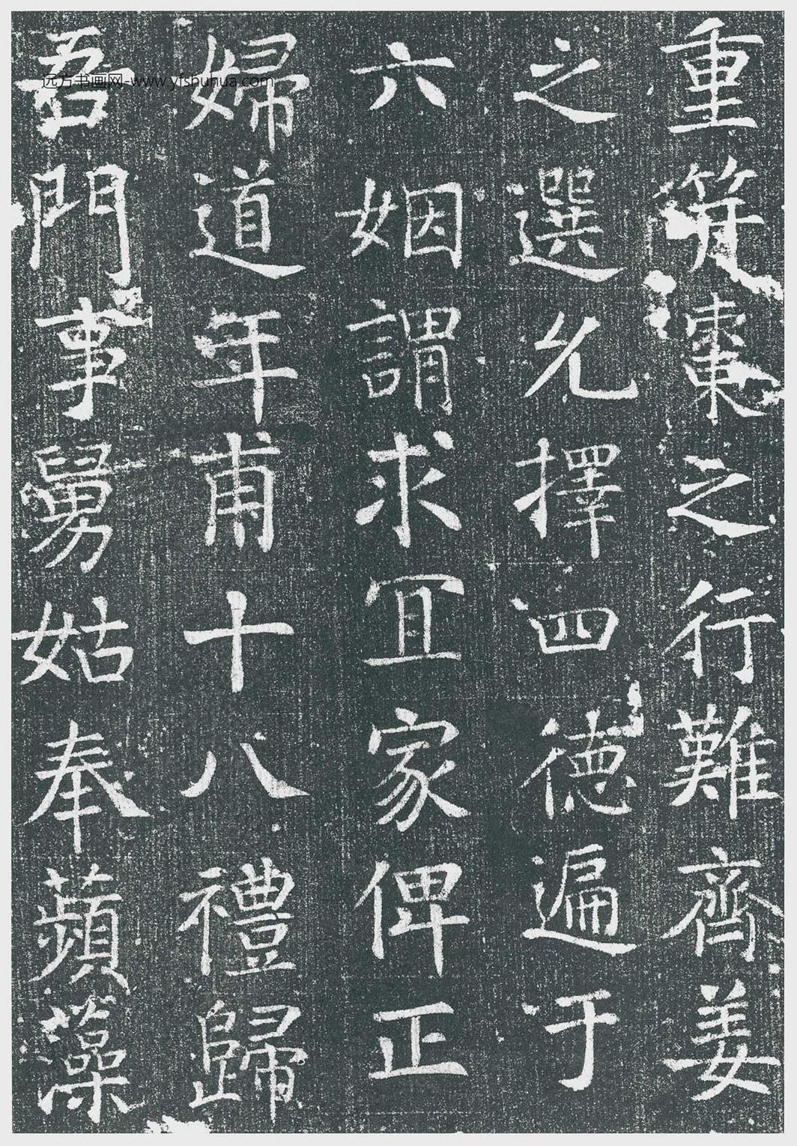 重笄棗之行難齊姜
之選允擇四德遍于
六姻謂求宜家俾正
婦道年甫十八禮歸
吾門事舅姑奉蘋藻
远方书画网-www.yfshuhua.com